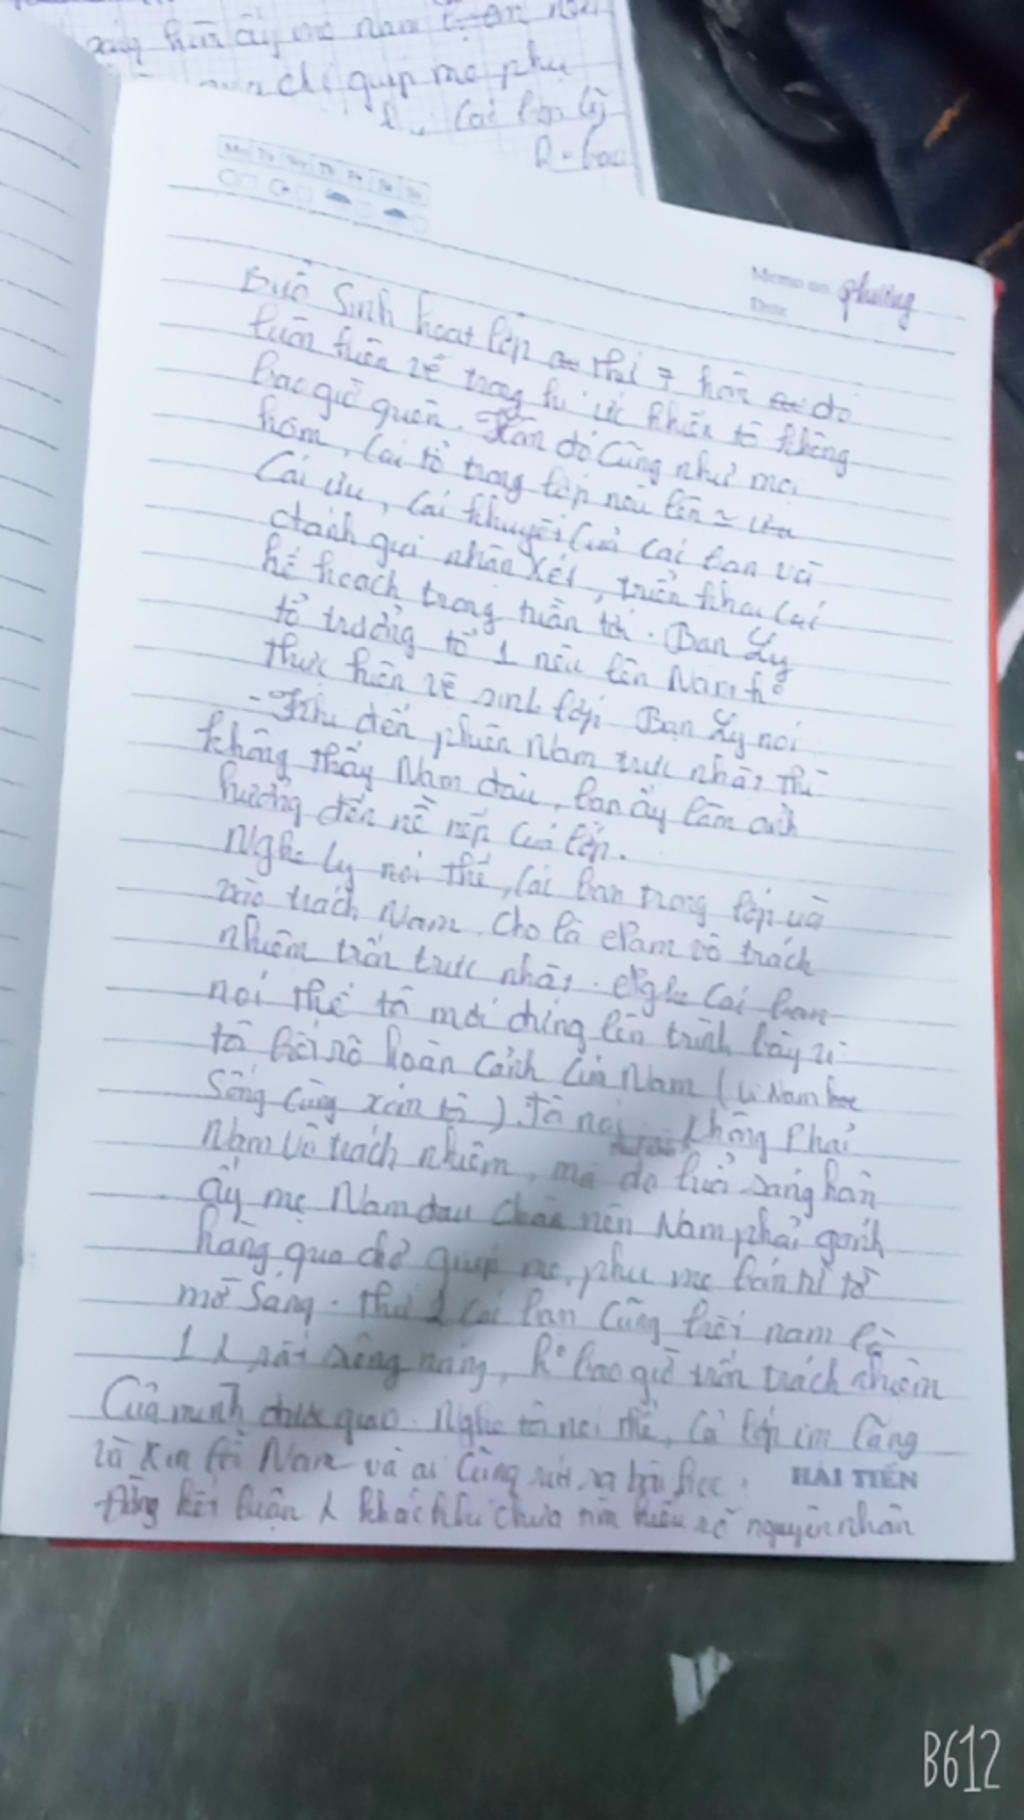 ấy mẹ nam
giúp mẹ phụ
Các bạn lý
k bao
Mo Tu We Th Fr Sa Su
Memo no. phương
Date
Buổ Sinh hoạt lớp thứ 7 hôm đó
luôn hiện về trong kí ức khiến tô không
bao giờ quên. Hôm đó Cũng như mọi
hôm, các tổ trong lớp nêu lên
Cái ưu, cái khuyết của các bạn và
đánh giá nhận xét, triển khai các
kế hoạch trong tuần tới. Bạn Ly
tổ trưởng tổ 1 nêu lên Nam ko
thực hiện vệ sinh lớp Bạn Ly nói
- Khi đến phiên Nam trực nhật thì
không thấy Nam đâu, bạn ấy làm ảnh
hưởng đến nề nếp của lớp.
Nghe Ly nói thế, các bạn trong lớp
trách Nam Cho là Nam vô trách
nhiệm trốn trực nhật. Nghe các bạn
nói thế tô mới đứng lên trình bày vì
tô biết rõ hoàn cảnh của Nam (vì Nam
Sống Cùng xóm tô). Tô nói không Phải
Nam vô trách nhiệm, mà do buổi sáng hôm
ấy mẹ Nam đau chân nên Nam phải gánh
hàng qua chợ giúp mẹ, phụ mẹ bán từ tờ
mờ Sáng. thứ 2 các bạn Cũng biết nam là
1 rất siêng năng, ko bao giờ trốn trách nhiệm
Của mình được giao. Nghe tô nói thế, Cả lớp im lặng
và xin lỗi Nam và ai Cũng rút ra bài học:
Đừng kết luận khác khi chưa tìm hiểu rõ nguyên nhân
HẢI TIẾN
B612